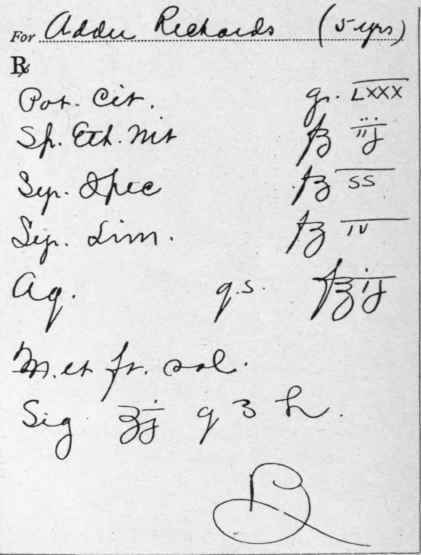 For Addie Richards (5 yrs)
℞
Pot. Cit. gr. LXXX
Sp. Eth. Nit fʒ iij
Syr. Ipec fʒ ss
Syr. Lim. fʒ iv
Aq. q.s. f℥ij
M. et ft. sol.
Sig ʒj q 3 h.